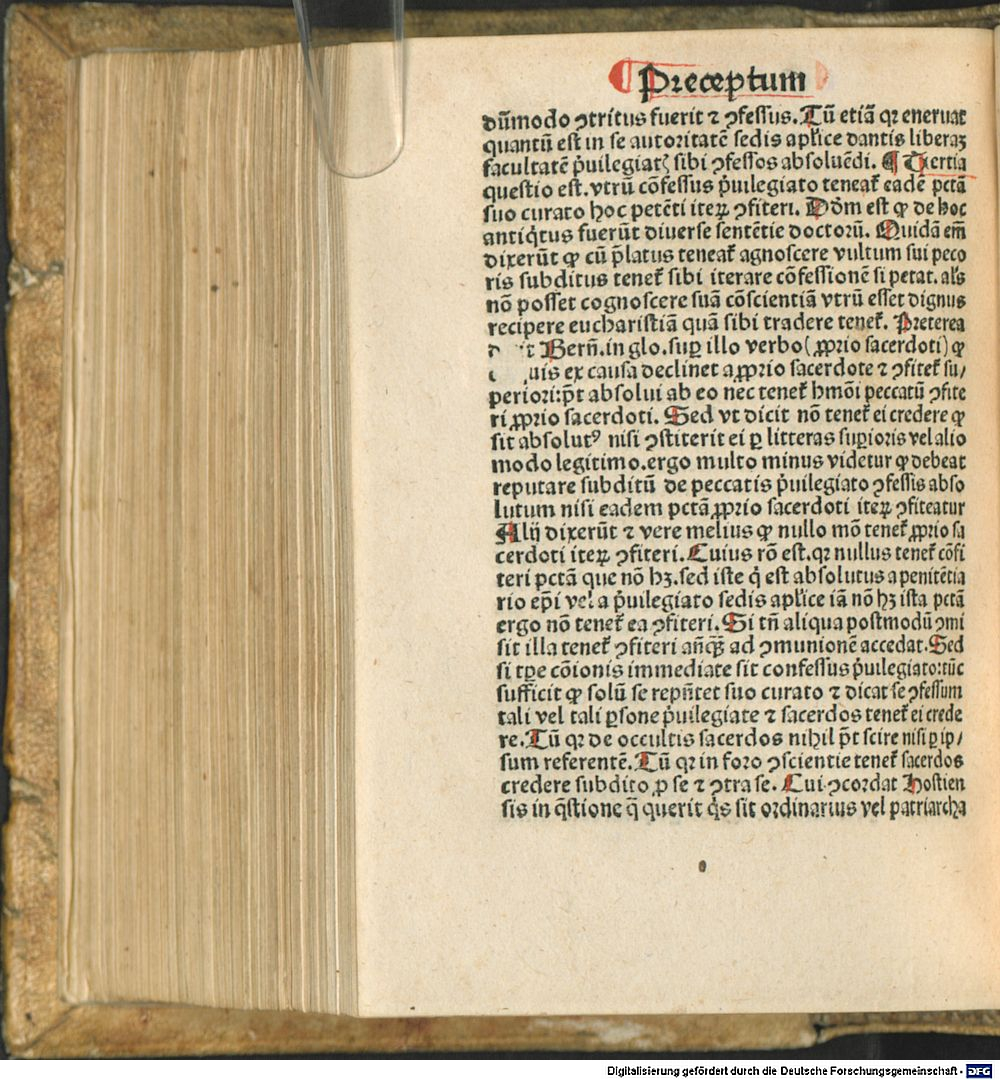 Preceptum
dũmodo ↄtritus fuerit ⁊ ↄfessus. Tũ etiã qꝛ eneruat
quantũ est in se autoritatẽ sedis apl'ice dantis liberaꝫ
facultatẽ p̍uilegiatꝭ sibi ↄfessos absoluẽdi. ¶ Tertia
questio est. vtrũ cõfessus p̍uilegiato teneat᷑ eadẽ pctã
suo curato hoc petẽti iteꝝ ↄfiteri. Dõm est ꝙ de hoc
antiq̍tus fuerũt diuerse sentẽtie doctorũ. Quidã em̃
dixerũt ꝙ cũ p̃latus teneat᷑ agnoscere vultum sui peco
ris subditus tenet᷑ sibi iterare cõfessionẽ si petat. al's
nõ posset cognoscere suã cõscientiã vtrũ esset dignus
recipere eucharistiã quã sibi tradere tenet᷑. Preterea
Berñ. in glo. suꝑ illo verbo (ꝓprio sacerdoti) ꝙ
uis ex causa declinet a ꝓprio sacerdote ⁊ ↄfitet᷑ su/
periori: p̃t absolui ab eo nec tenet᷑ hmõi peccatũ ↄfite
ri ꝓprio sacerdoti. Sed vt dicit nõ tenet᷑ ei credere ꝙ
sit absolutꝰ nisi ↄstiterit ei ꝑ litteras suꝑioris vel alio
modo legitimo. ergo multo minus videtur ꝙ debeat
reputare subditũ de peccatis p̍uilegiato ↄfessis abso
lutum nisi eadem pctã ꝓprio sacerdoti iteꝝ ↄfiteatur
Alij dixerũt ⁊ vere melius ꝙ nullo mõ tenet᷑ ꝓprio sa
cerdoti iteꝝ ↄfiteri. Cuius rõ est. qꝛ nullus tenet᷑ cõfi
teri pctã que nõ hꝫ. sed iste q̍ est absolutus a penitẽtia
rio ep̃i vel a p̍uilegiato sedis apl'ice iã nõ hꝫ ista pctã
ergo nõ tenet᷑ ea ↄfiteri. Si tñ aliqua postmodũ ↄmi
sit illa tenet᷑ ↄfiteri añꝙ̃ ad ↄmunionẽ accedat. Sed
si tꝑe cõionis immediate sit confessus p̍uilegiato: tũc
sufficit ꝙ solũ se repñtet suo curato ⁊ dicat se ↄfessum
tali vel tali ꝑsone p̍uilegiate ⁊ sacerdos tenet᷑ ei crede
re. Tũ qꝛ de occultis sacerdos nihil p̃t scire nisi ꝑ ip/
sum referentẽ. Tũ qꝛ in foro ↄscientie tenet᷑ sacerdos
credere subdito ꝓ se ⁊ ↄtra se. Cui ↄcordat Hostien
sis in q̃stione q̃ querit q̍s sit ordinarius vel patriarcha
Digitalisierung gefördert durch die Deutsche Forschungsgemeinschaft - DFG